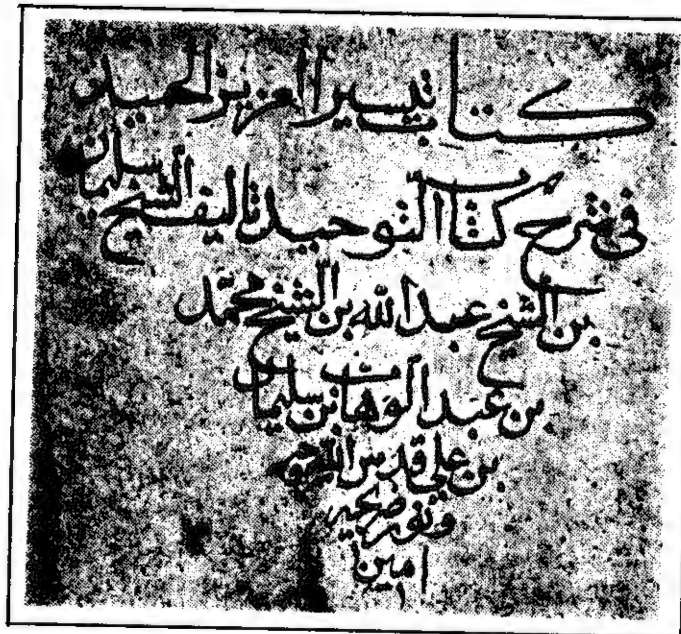 كتاب تيسير العزيز الحميد
في شرح كتاب التوحيد تاليف الشيخ سليمان
بن الشيخ عبد الله بن الشيخ محمد
بن عبد الوهاب بن سليمان
بن علي قدس الله روحه
ونور ضريحه
امين